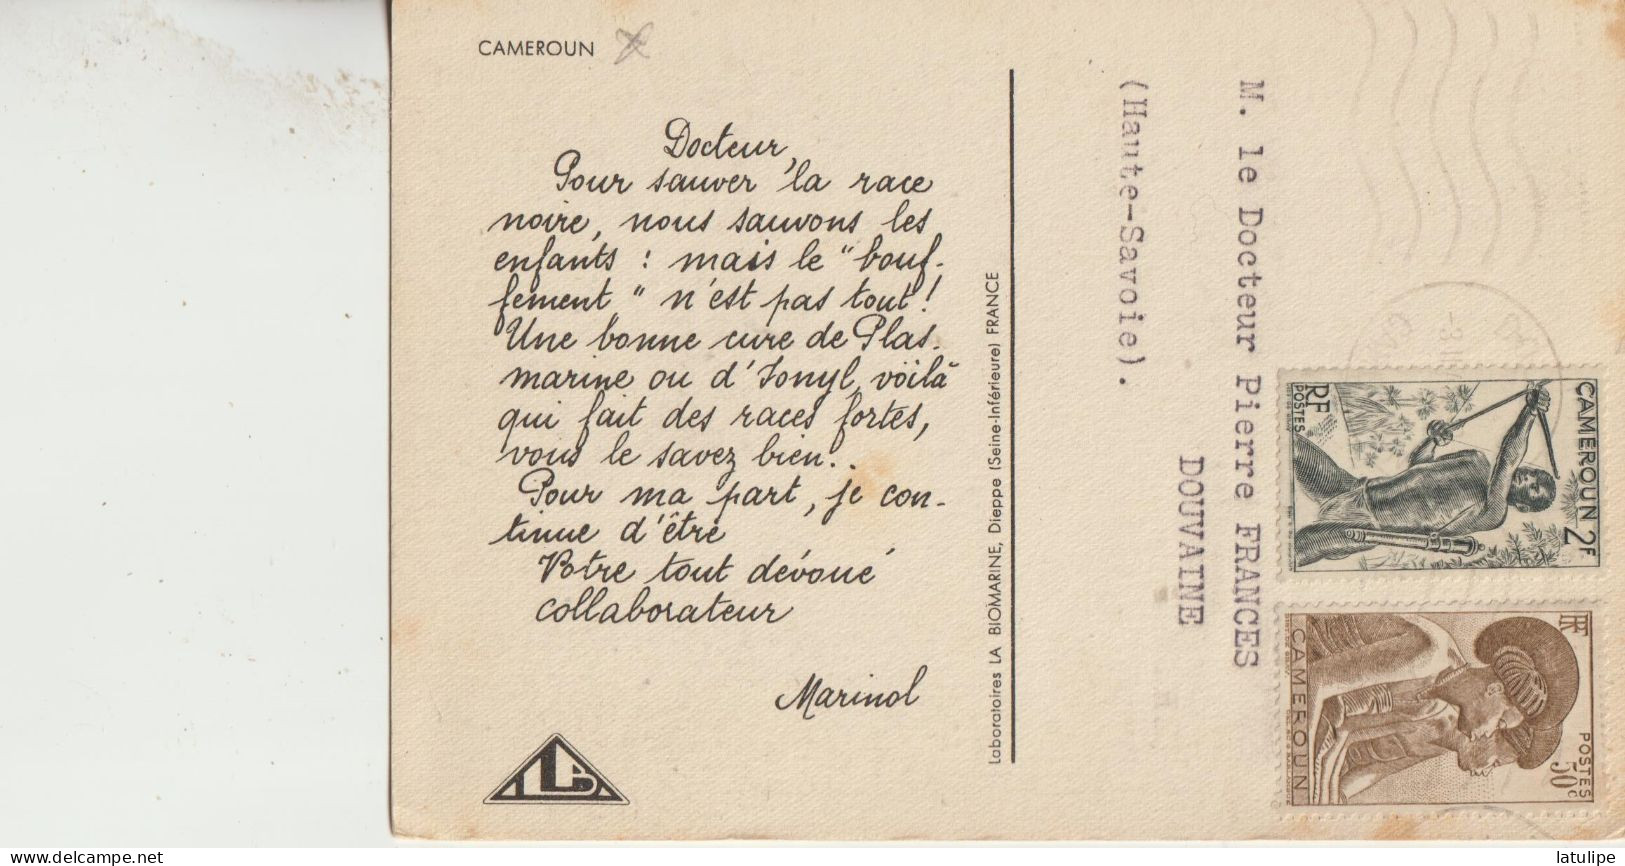 CAMEROUN
Docteur,
Pour sauver la race
noire, nous sauvons les
enfants : mais le "bouf-
fement" n'est pas tout !
Une bonne cure de Plas-
marine ou d'Ionyl, voilà
qui fait des races fortes,
vous le savez bien..
Pour ma part, je con-
tinue d'être
Votre tout dévoué
collaborateur
Marinol
LB
Laboratoires LA BIOMARINE, Dieppe (Seine-Inférieure) FRANCE
M. le Docteur Pierre FRANCES
DOUVAINE
(Haute-Savoie).
CAMEROUN 2F
RF
POSTES
RF
POSTES
50c
CAMEROUN
latulipe